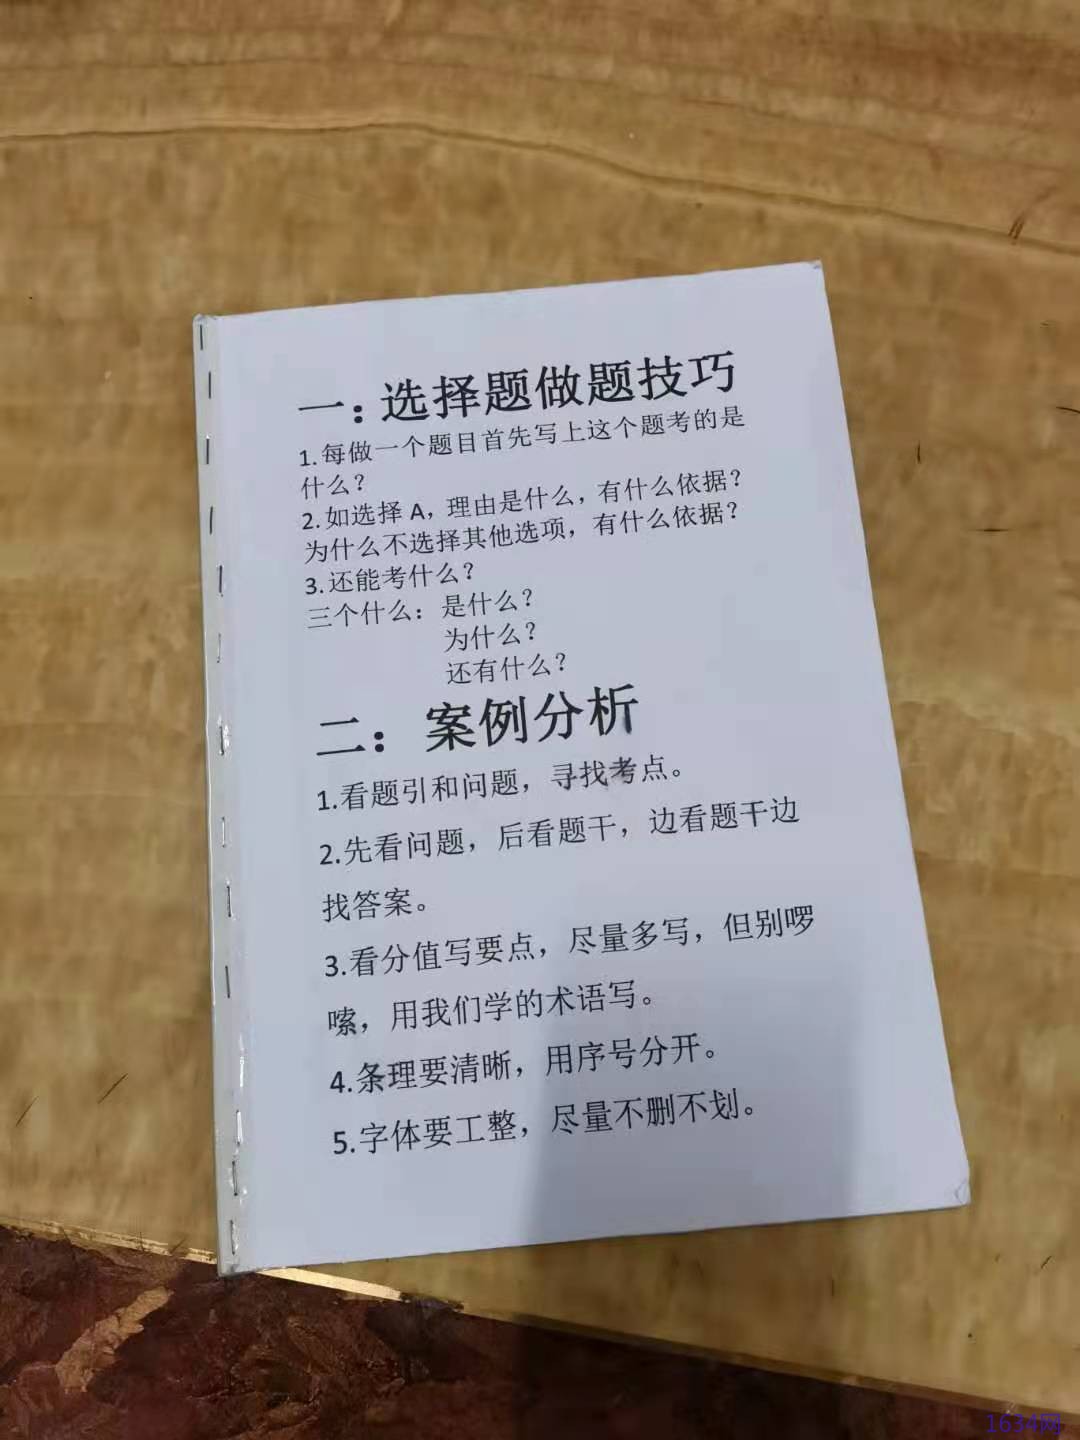 一：选择题做题技巧
1.每做一个题目首先写上这个题考的是
什么？
2.如选择 A，理由是什么，有什么依据？
为什么不选择其他选项，有什么依据？
3.还能考什么？
三个什么：是什么？
为什么？
还有什么？
二：案例分析
1.看题引和问题，寻找考点。
2.先看问题，后看题干，边看题干边
找答案。
3.看分值写要点，尽量多写，但别啰
嗦，用我们学的术语写。
4.条理要清晰，用序号分开。
5.字体要工整，尽量不删不划。
1634网